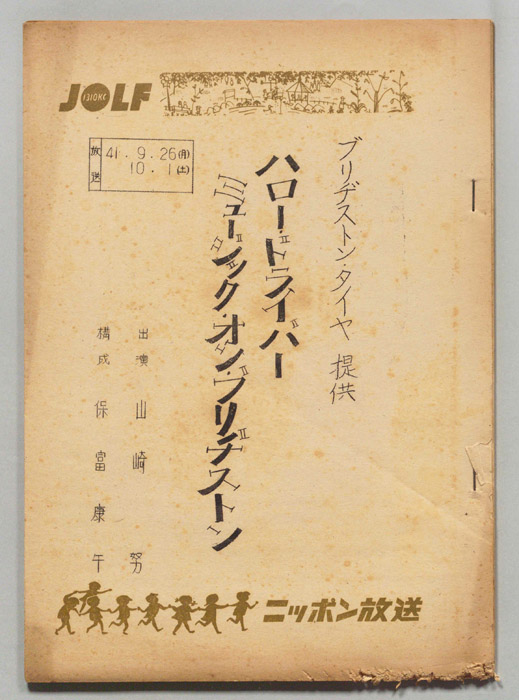 JOLF
1310KC
放送
41.9.26(月)
10.1(土)
ブリヂストン・タイヤ 提供
ハロー・ドライバー
ミュージック・オン・ブリヂストン
出演 山崎 努
構成 保富康午
ニッポン放送